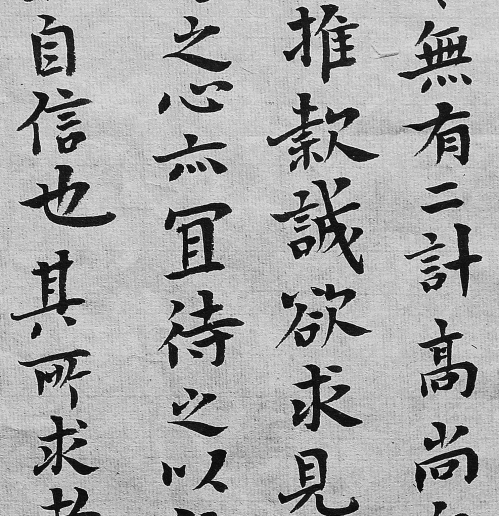 無有二計高尚
推款誠欲求見
之心亦冝待之以
自信也其所求